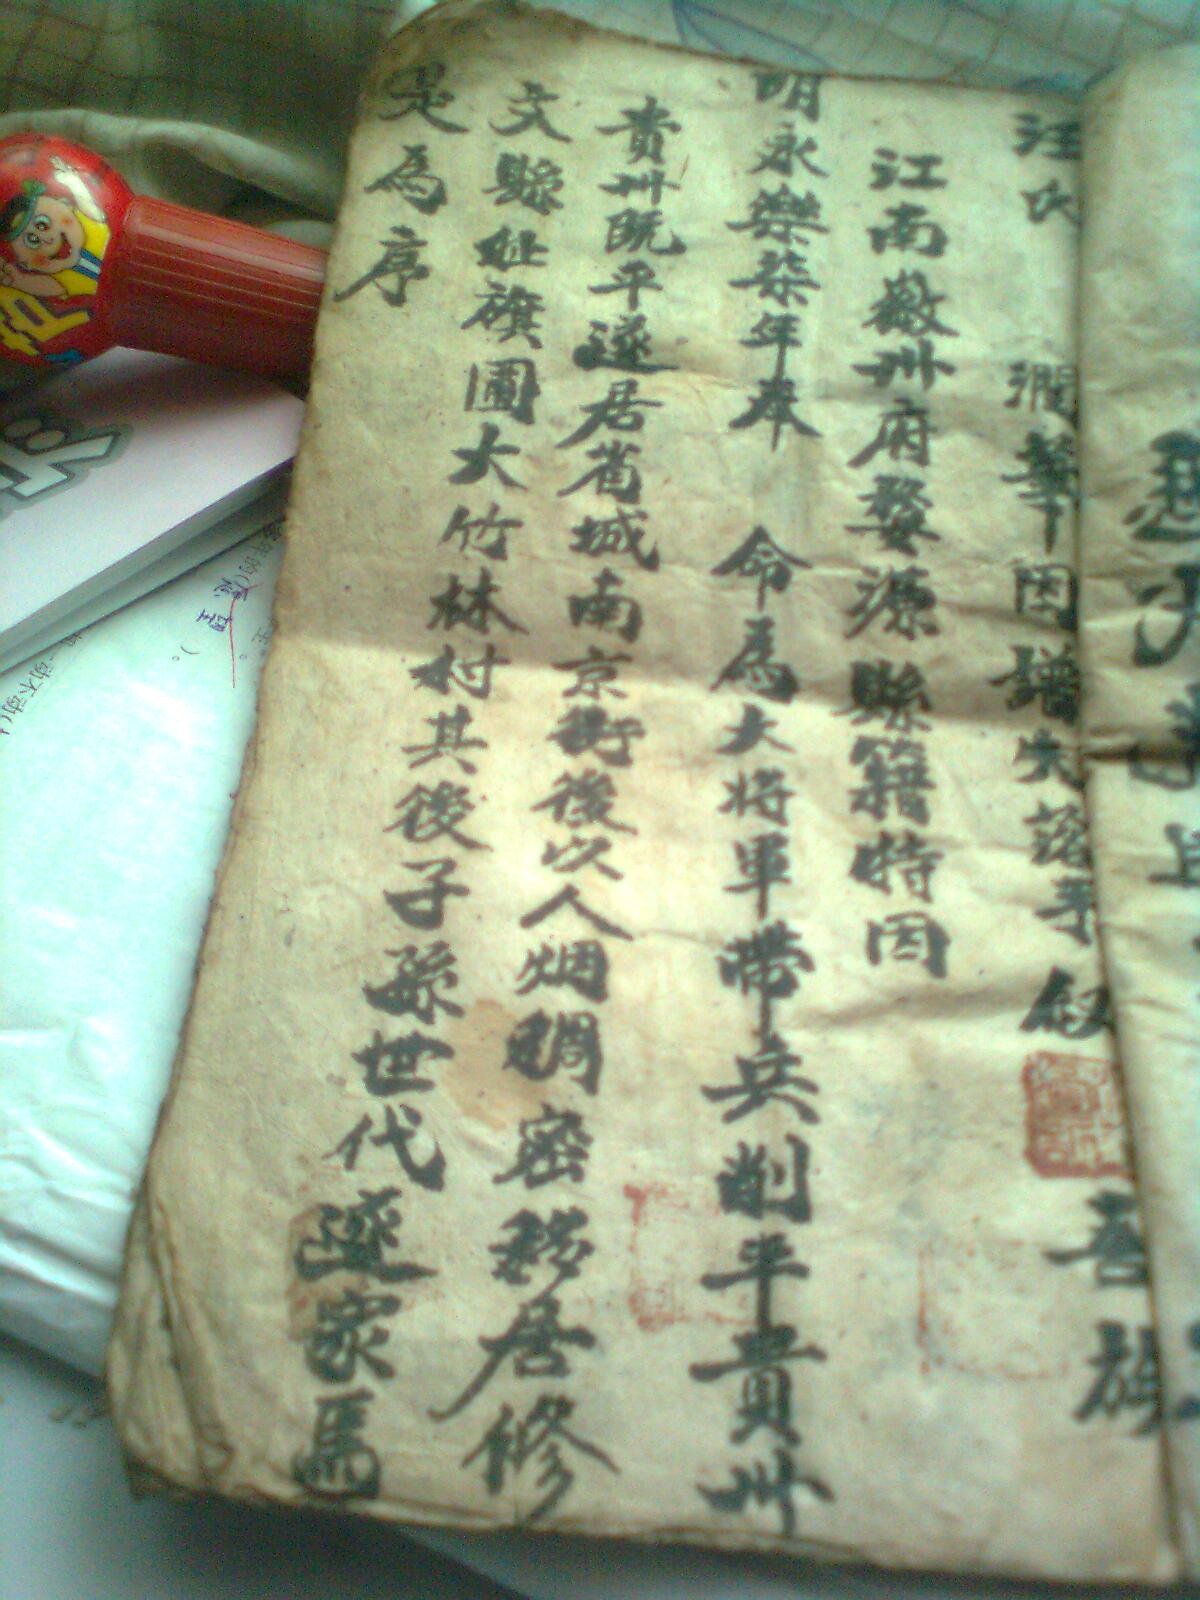 汪氏 潤華因增失落手 吾族
江南徽州府婺源縣籍特因
明永樂柒年奉 命爲大將軍帶兵削平貴州
貴州既平遂居省城南京街後以人烟稠密移居修
文縣 旗圖大竹林村其後子孫世代遂家焉
是為序